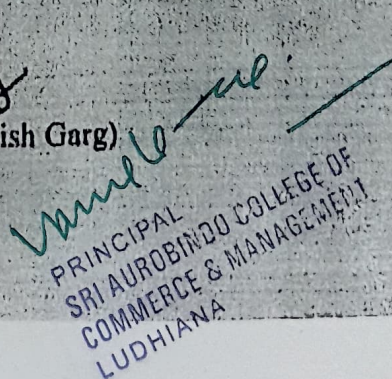 ish Garg)
PRINCIPAL
SRI AUROBINDO COLLEGE OF
COMMERCE & MANAGEMENT
LUDHIANA